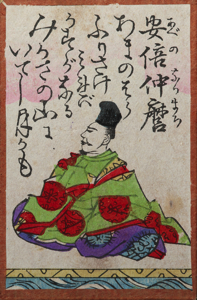 安倍仲麿
あべの なかまろ
あまのはら
ふりさけ
みれば
かすがなる
みかさの山に
いでし月かも